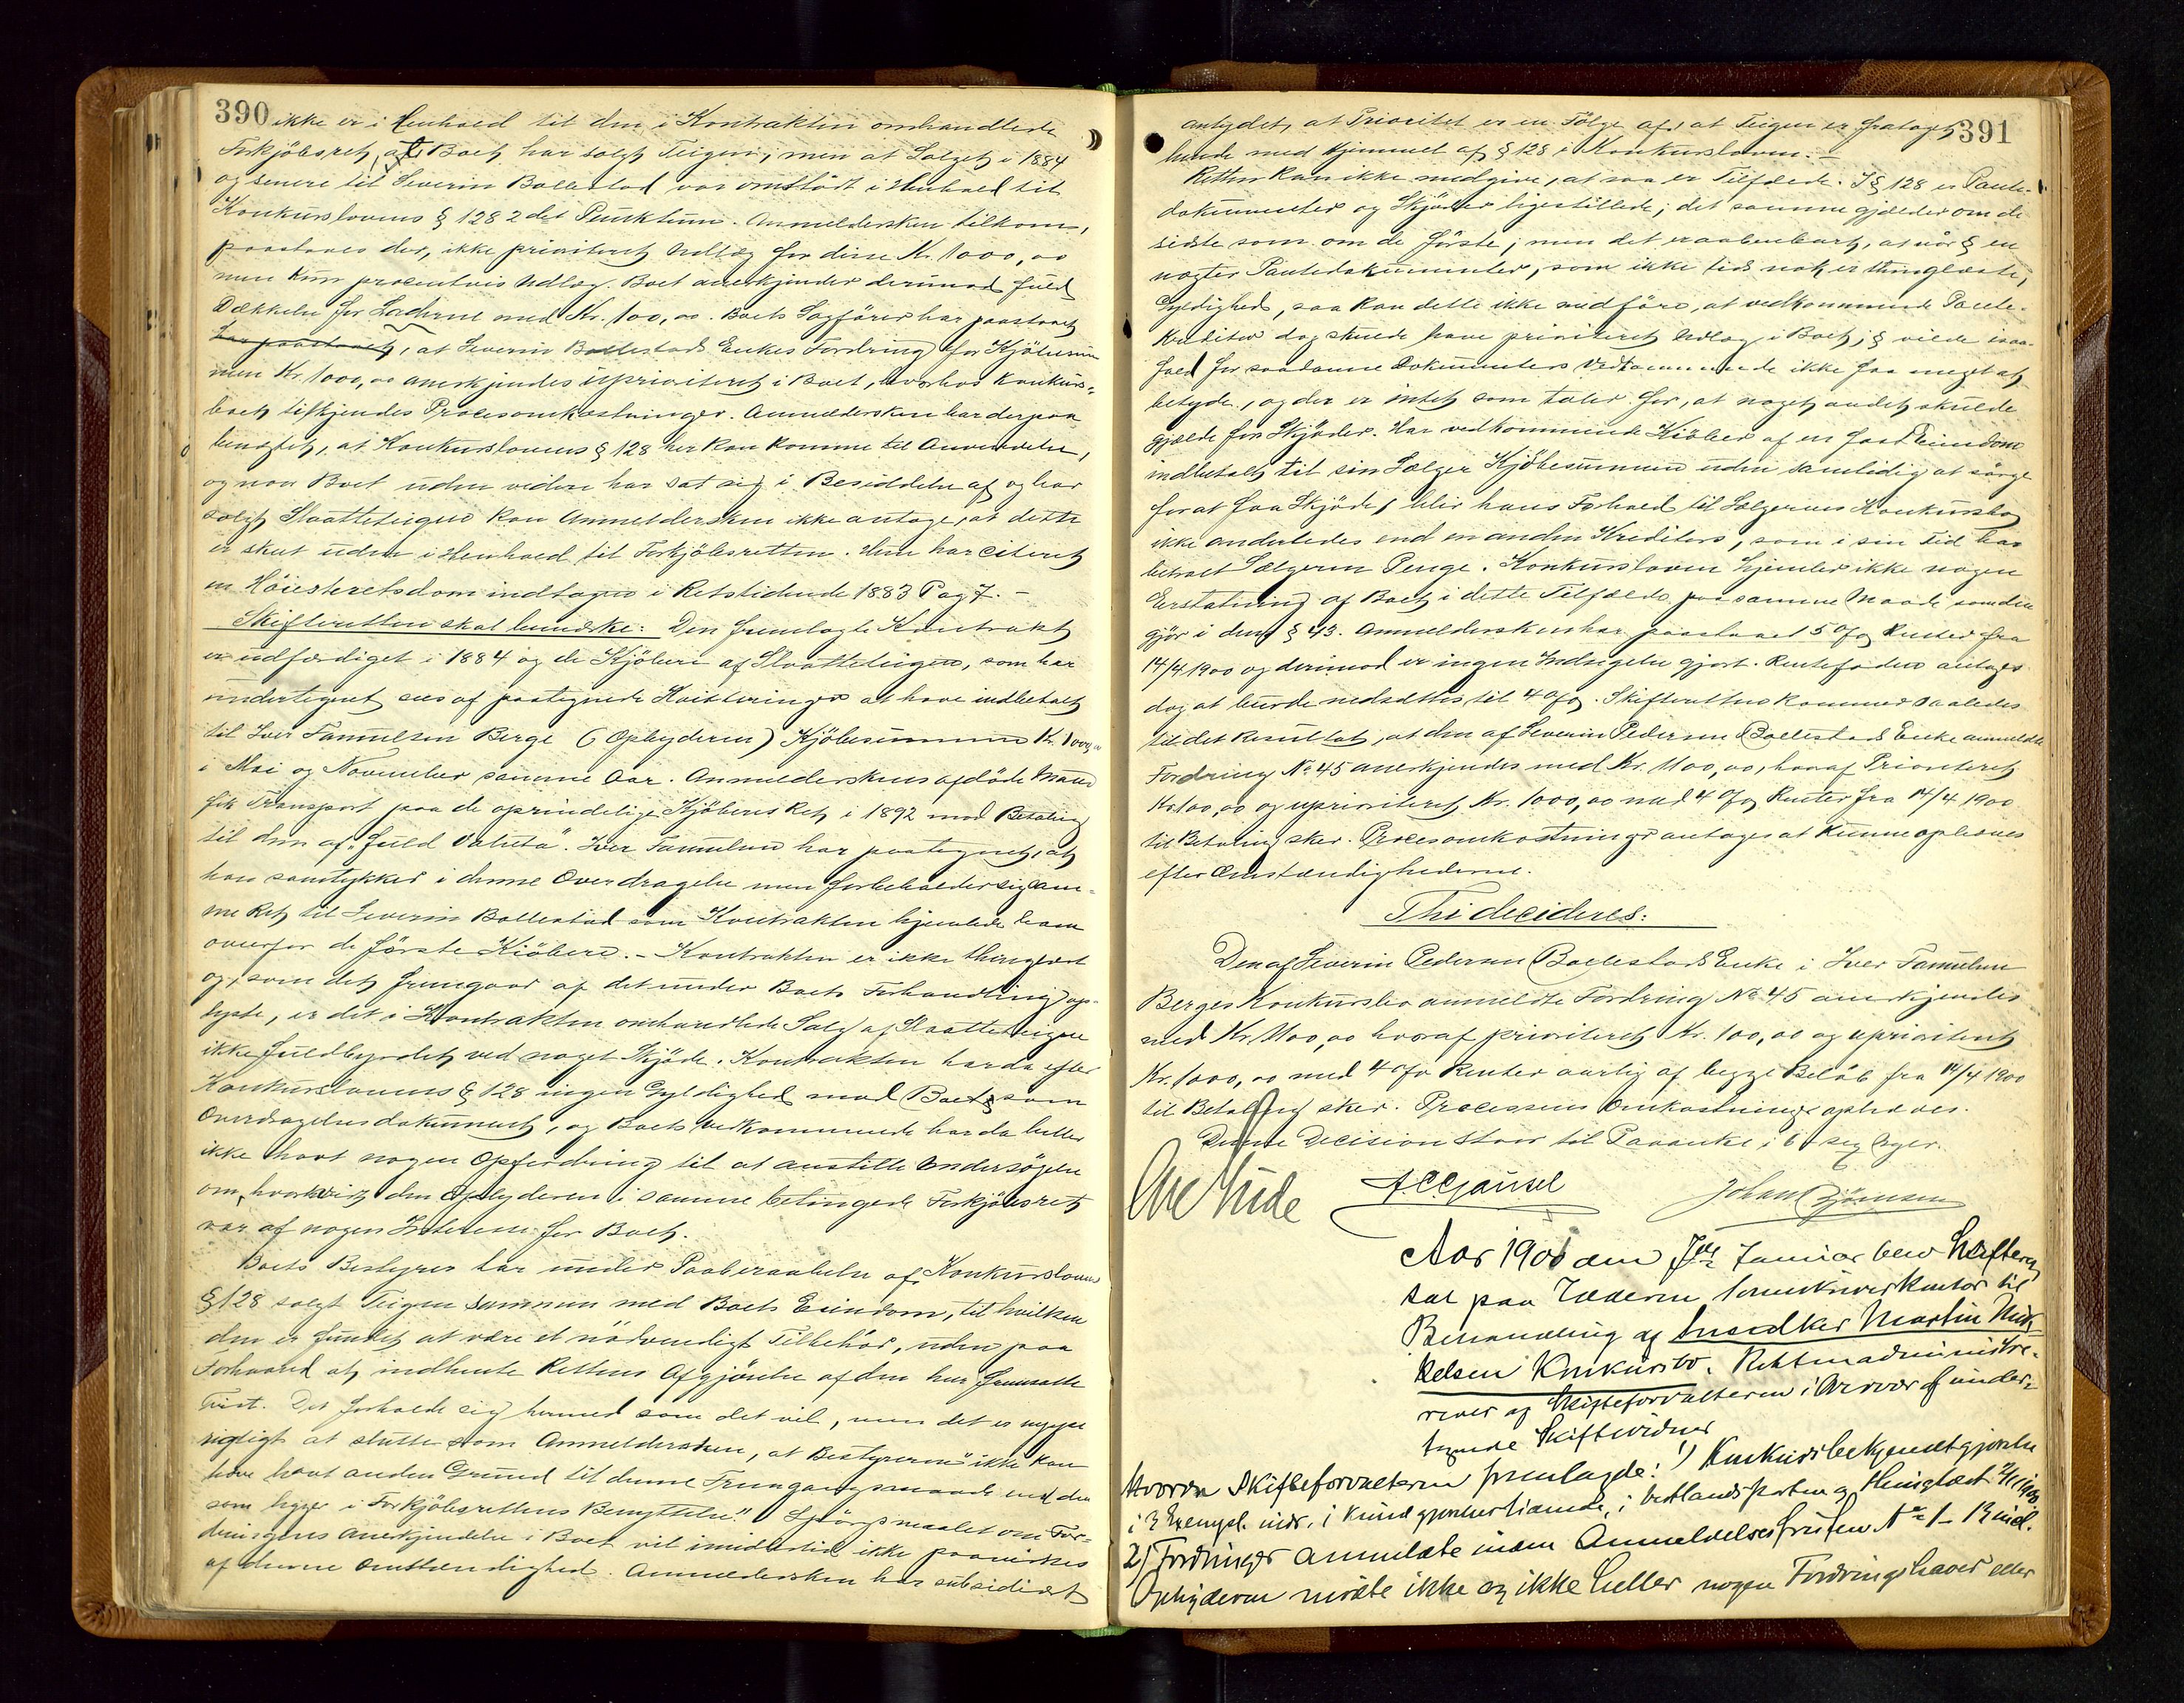 390
ikke er i Henhold til den i Kontrakten omhandlede
Forkjöbsret, at Boet har solgt Teigen, men at Salget i 1884
og senere til Severin Bollestad var omstödt i Henhold til
Konkurslovens § 128 2det Punktum. Anmeldersken tilkom,
paastaaes der, ikke prioriteret Udlæg for disse Kr. 1000,00
men kun procentvis Udlæg. Boet anerkjender derimod fuld
Dækkelse for Laderne med Kr. 100,00. Boets Sagförer har paastaaet
har paastaaet, at Severin Bollestads Enkes Fordring for Kjöbesum
men Kr. 1000,00 anerkjendes uprioriteret i Boet, hvorhos Konkurs-
boet tilkjendes Procesomkostninger. Anmeldersken har derpaa
benegtet, at Konkurslovens § 128 her kan komme til Anvendelse,
og naar Boet uden videre har sat sig i Besiddelse af og har
solgt Slaatteteigen kan Anmeldersken ikke antage, at dette
er skeet uden i Henhold til Forkjöbsretten. Hun har citeret
en Höiesteretsdom indtagen i Retstidende 1883 Pag 7. -
Skifteretten skal bemærke: Den fremlagte Kontrakt
er udfærdiget i 1884 og de Kjöbere af Slaatteteigen, som har
undertegnet sees af paategnede Kvitteringer at have indbetalt
til Iver Tamulsen Berge (Opbyderen) Kjöbesummen Kr. 1000,00
i Mai og November samme Aar. Anmelderskens afdöde Mand
fik Transport paa de oprindelige Kjöberes Ret i 1892 mod Betaling
til dem af "fuld Valuta". Iver Tamulsen har paategnet, at
han samtykker i denne Overdragelse men forbeholder sig sam-
me Ret til Severin Bollestad som Kontrakten hjemlede ham
overfor de förste Kjöbere. - Kontrakten er ikke thinglæst
og, som det fremgaar af det under Boets Forhandling op-
lyste, er det i Kontrakten omhandlede Salg af Slaatteteigen
ikke fuldbyrdet ved noget Skjöde. Kontrakten har da efter
Konkurslovens § 128 ingen Gyldighed mod Boet som
Overdragelsesdokument, og Boets Vedkommende har da heller
ikke havt nogen Opfordring til at anstille Undersögelse
om, hvorvidt den Opbyderen i samme betingede Forkjöbsret
var af nogen Interesse for Boet.
Boets Bestyrer har under Paaberaabelse af Konkurslovens
§ 128 solgt Teigen sammen med Boets Eiendom, til hvilken
den er fundet at være et nödvendigt Tilbehör, uden paa
Forhaand at indhente Rettens Afgjörelse af den her fremsatte
Tvist. Det forholde sig hermed som det vil, men det er neppe
rigtigt at slutte som Anmeldersken, at Bestyreren "ikke kan
have havt anden Grund til denne Fremgangsmaade end den
som ligger i Forkjöbsrettens Benyttelse." Spörgsmaalet om For-
dringens Anerkjendelse i Boet vil imidlertid ikke paavirkes
af denne Omstændighed. Anmeldersken har subsidiært
391
antydet, at Prioritet er en Fölge af, at Teigen er frataget
hende med Hjemmel af § 128 i Konkursloven. -
Retten kan ikke medgive, at saa er Tilfælde. I § 128 er Pante-
dokumenter og Skjöder ligestillede; det samme gjælder om de
sidste som om de förste; men det er aabenbart, at når § en
negter Pantedokumenter, som ikke tids nok er thinglæste,
Gyldighed, saa kan dette ikke medföre, at vedkommende Pante-
kreditor dog skulde have prioriteret Udlæg i Boet; § vilde isaa-
fald for saadanne Dokumenters Vedkommende ikke faa meget at
betyde, og der er intet som taler for, at noget andet skulde
gjælde for Skjöder. Har vedkommende Kjöber af en fast Eiendom
indbetalt til sin Sælger Kjöbesummen uden samtidig at sörge
for at faa Skjöde, blir hans Forhold til Sælgerens Konkursbo
ikke anderledes end en anden Kreditors, som i sin Tid har
betroet Sælgeren Penge. Konkursloven hjemler ikke nogen
Erstatning af Boet i dette Tilfælde paa samme Maade som den
gjör i den § 43. Anmeldersken har paastaaet 5 % Renter fra
14/4 1900 og derimod er ingen Indsigelse gjort. Rentefoden antages
dog at burde nedsættes til 4 %. Skifteretten kommer saaledes
til det Resultat, at den af Severin Pedersen Bollestads Enke anmeldte
Fordring No 45 anerkjendes med Kr. 1100,00, hvoraf Prioriteret
Kr. 100,00 og uprioriteret Kr. 1000,00 med 4 % Renter fra 14/4 1900
til Betaling sker. Procesomkostninger antages at kunne ophæves
efter Omstændighederne.
Thi decideres:
Den af Severin Pedersen Bollestads Enke i Iver Tamulsen
Berges Konkursbo anmeldte Fordring No 45 anerkjendes
med Kr. 1100,00 hvoraf prioriteret Kr. 100,00 og uprioriteret
Kr. 1000,00 med 4 % Renter aarlig af begge Belöb fra 14/4 1900
til Betaling sker. Processens Omkostninger ophæves.
Denne Decision staar til Paaanke i 6 sex Uger.
A.C. Gausel
Aar 1901 den 7de Januar blev Skifteret
sat paa Jæderens Sorenskriverkontor til
Behandling af Snedker Martin Mik-
kelsen Konkursbo. Retten administre-
redes af Skifteforvalteren i Overvær af under-
tegnede Skiftevidner
Hvorda Skifteforvalteren fremlagde: 1) Konkursbekjendtgjørelse
i 3 Exempl. indr. i Kundgjørelsestidende, i Vestlandsposten og thinglæst
2) Fordringer anmeldte inden Anmeldelsesfristen No 1 - 13 incl.
Opbyderen mødte ikke og ikke heller nogen Fordringshaver eller